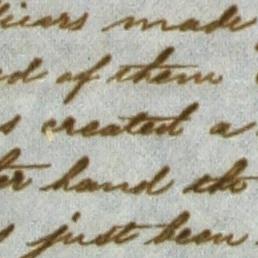 made
ed of them
s created a
ter hand the
s just been